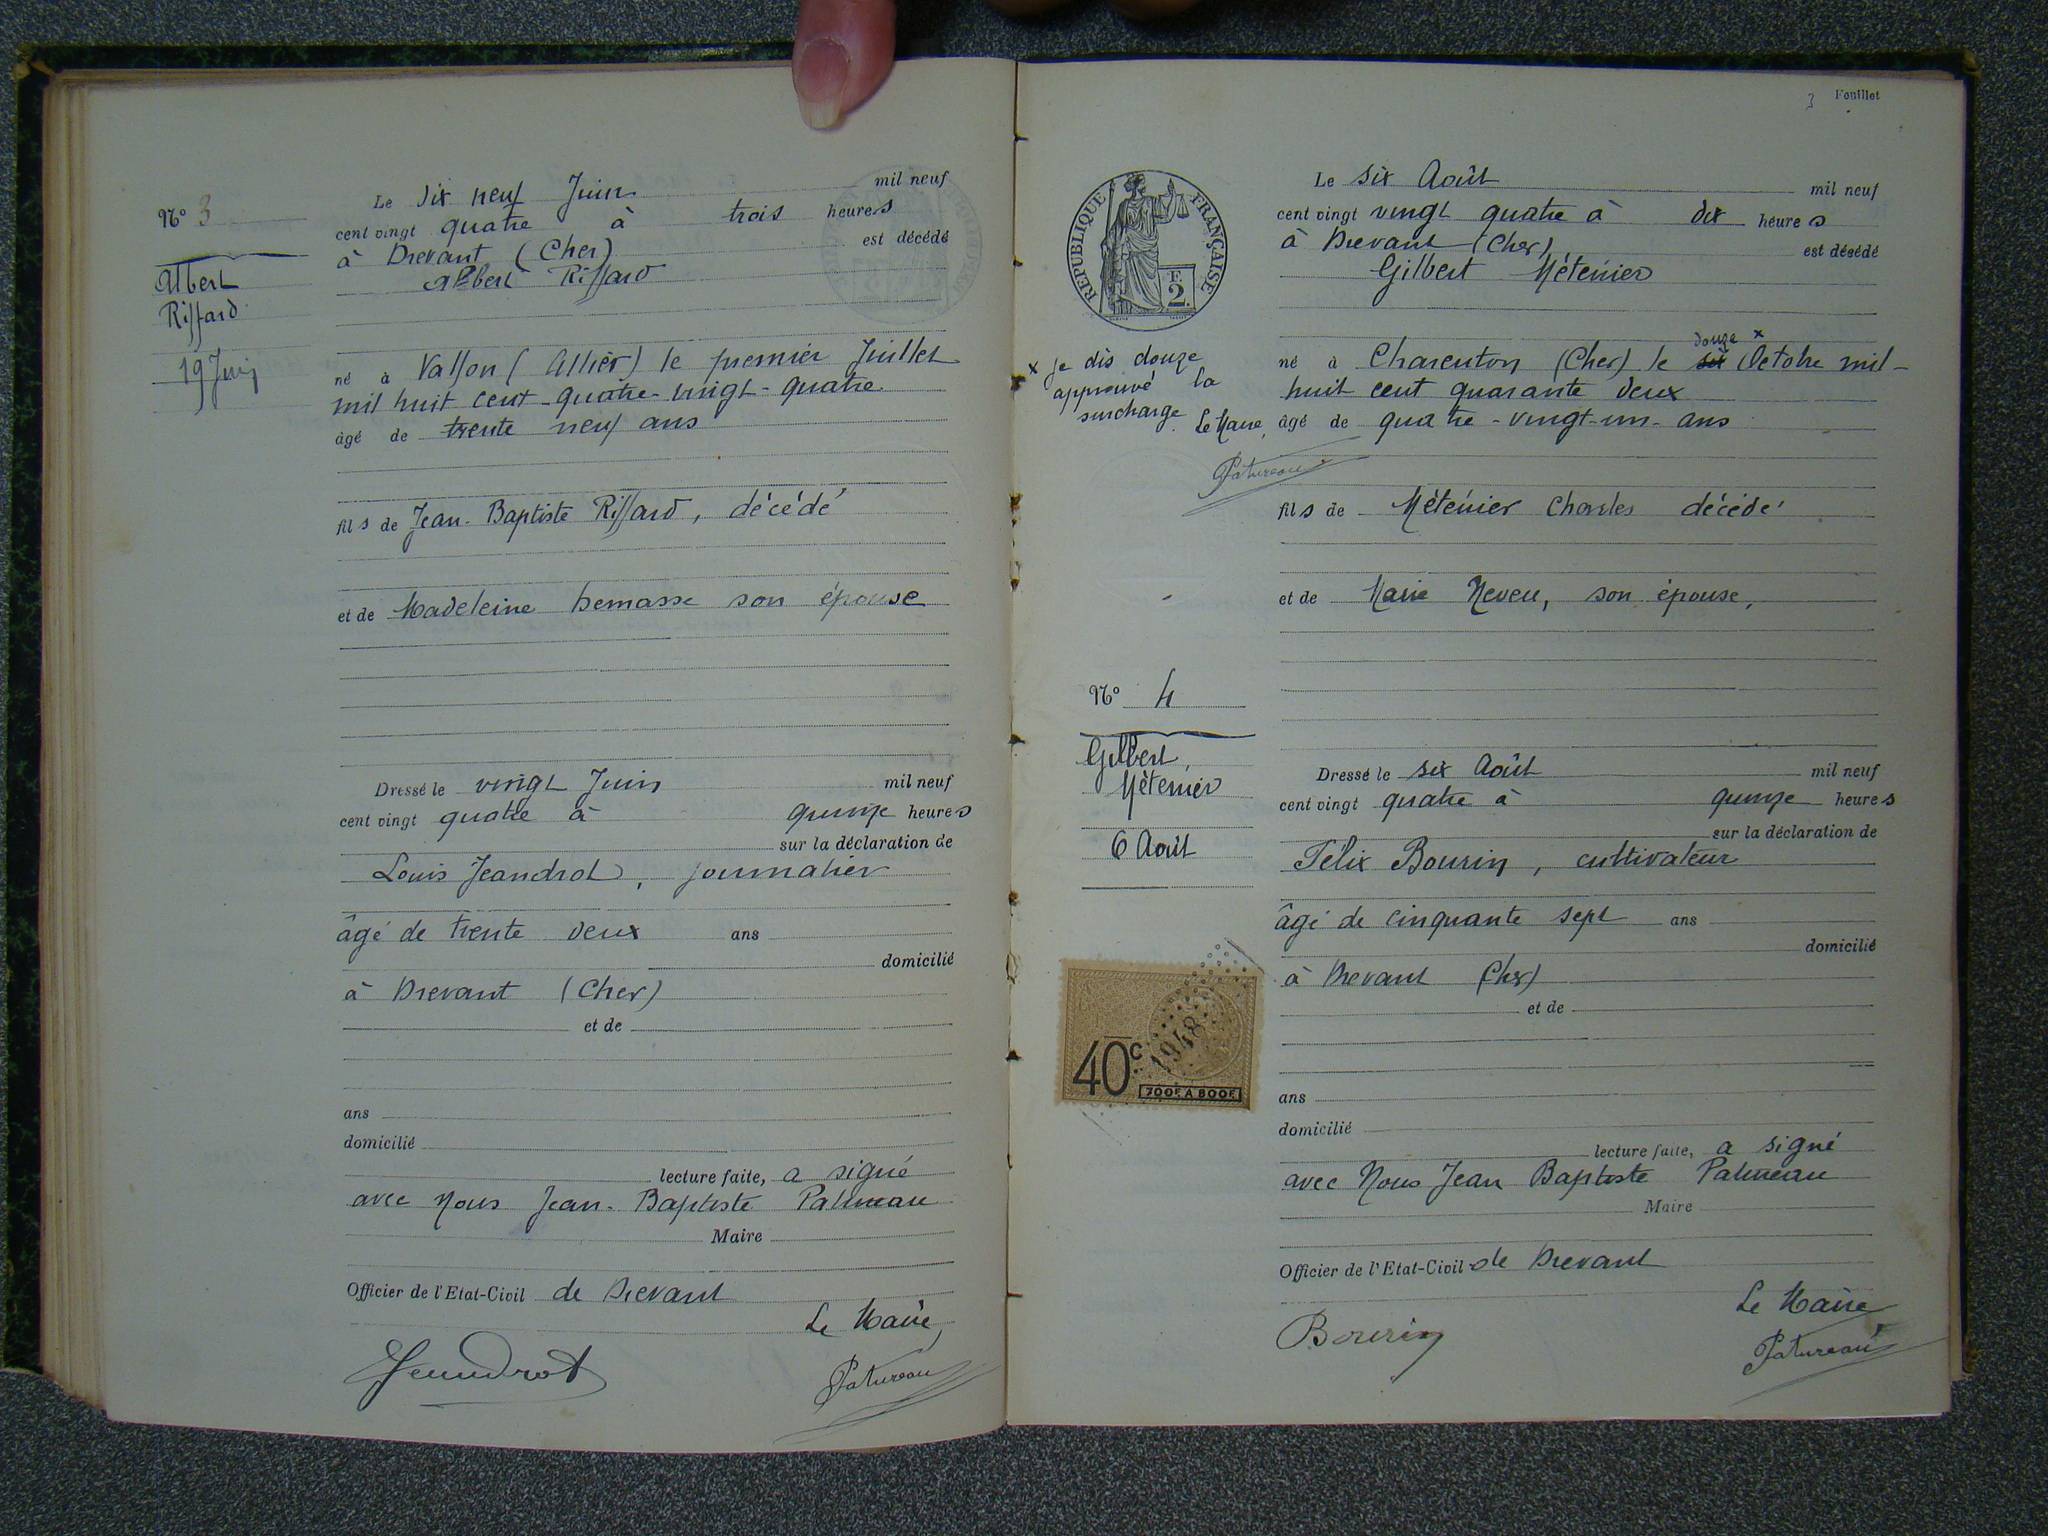 N° 3
Albert
Riffard
19 Juin
Le dix neuf Juin mil neuf
cent vingt quatre à trois heures
à Drevant (Cher) est décédé
Albert Riffard
né à Vallon (Allier) le premier Juillet
mil huit cent quatre-vingt-quatre
âgé de trente neuf ans
fils de Jean-Baptiste Riffard, décédé
et de Madeleine Demasse son épouse
Dressé le vingt Juin mil neuf
cent vingt quatre à quinze heures
sur la déclaration de
Louis Jeandrot, journalier
âgé de trente deux ans
domicilié
à Drevant (Cher)
et de
ans
domicilié
lecture faite, a signé
avec Nous Jean-Baptiste Patureau
Maire
Officier de l'Etat-Civil de Drevant
Le Maire,
Jeandrot
Patureau
3 Feuillet
RÉPUBLIQUE FRANÇAISE
F
2
Le six Août mil neuf
cent vingt vingt quatre à dix heures
à Drevant (Cher) est décédé
Gilbert Méténier
douze x
né à Charenton (Cher) le six Octobre mil-
huit cent quarante deux
âgé de quatre-vingt-un-ans
x je dis douze
approuvé la
surcharge
Le Maire,
Patureau
fils de Méténier Charles décédé
et de Marie Neveu, son épouse,
N° 4
Gilbert,
Méténier
6 Août
Dressé le six Août mil neuf
cent vingt quatre à quinze heures
sur la déclaration de
Félix Bourin, cultivateur
âgé de cinquante sept ans
domicilié
à Drevant (Cher)
et de
ans
domicilié
lecture faite, a signé
avec Nous Jean Baptiste Patureau
Maire
Officier de l'Etat-Civil de Drevant
Le Maire
Bourin
Patureau
1948
40c
700F A 800F